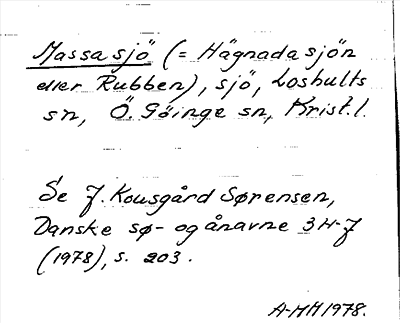 Massasjö (= Hägnadasjön
eller Rubben), sjö, Loshults
sn, Ö. Göinge sn, Krist. l.
Se J. Kousgård Sørensen,
Danske sø- og ånavne 3 H-J
(1978), s. 203.
A-MH 1978.